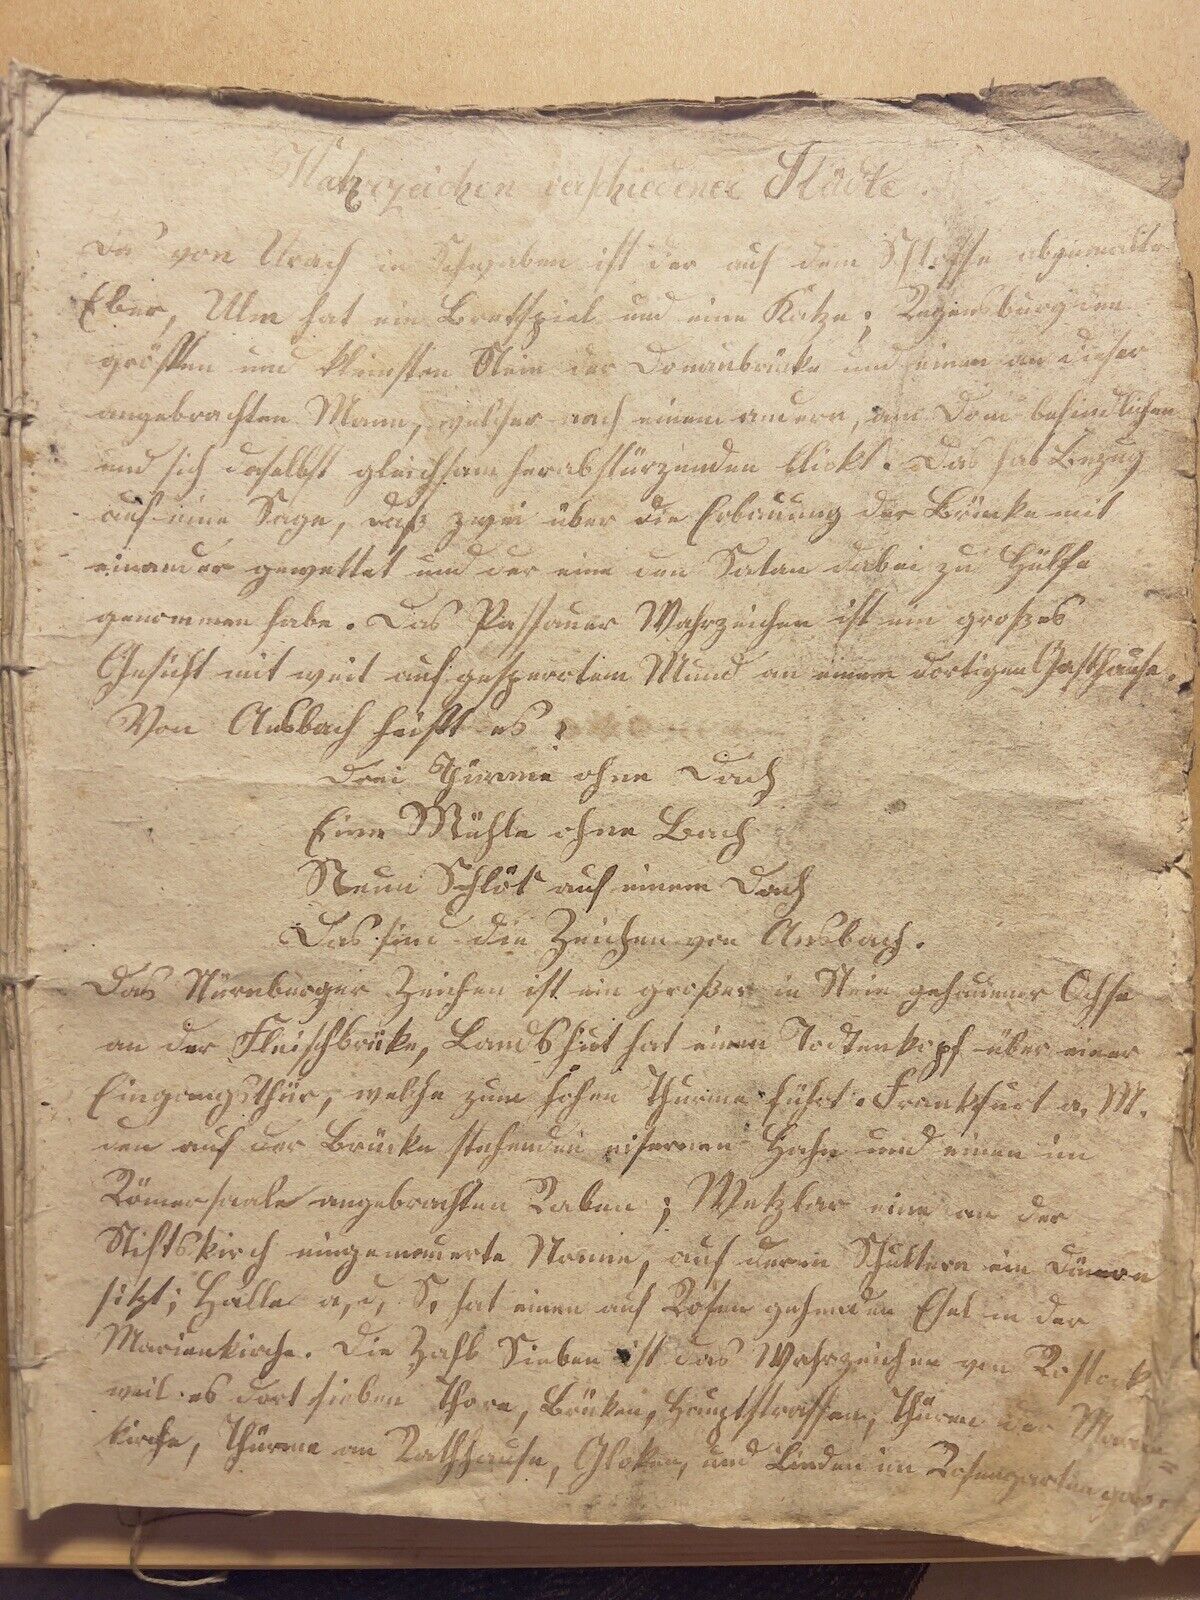 Wahrzeichen verschiedener Städte.
Das von Urach in Schwaben ist der auf dem Schlosse abgemalte
Eber, Ulm hat ein Bretspiel und eine Katze; Regensburg den
größten und kleinsten Stein der Donaubrücke und einen an dieser
angebrachten Mann, welcher nach einem andern, am Dom befindlichen
und sich daselbst gleichsam herabstürzenden blickt. Das hat Bezug
auf eine Sage, daß zwei über die Erbauung der Brücke mit
einander gewettet und der eine den Satan dabei zu Hülfe
genommen habe. Das Passauer Wahrzeichen ist ein großes
Gesicht mit weit aufgesperrtem Mund an einem dortigen Gasthause.
Von Ansbach heißt es:
Drei Thürme ohne Dach
Eine Mühle ohne Bach
Neun Schlöt auf einem Dach
Das sind die Zeichen von Ansbach.
Das Nürnburger Zeichen ist ein großer in Stein gehauener Ochse
an der Fleischbrücke, Landshut hat einen Todtenkopf über einer
Eingangsthür, welche zum hohen Thurme führt. Frankfurt a. M.
den auf der Brücke stehenden eisernen Hahn und einen im
Römersaale angebrachten Raben; Wetzlar eine an der
Stiftskirch eingemauerte Nonne, auf deren Schultern ein Dämon
sitzt; Halle a, d, S, hat einen auf Rosen gehenden Esel in der
Marienkirche. Die Zahl Sieben ist das Wahrzeichen von Rostock
weil es dort sieben Thore, Brüken, Hauptstrassen, Thüren der Marien
kirche, Thürme am Rathhause, Gloken, und Linden im Rosengarten